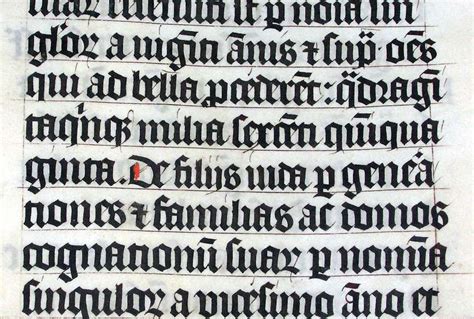 suaꝝ recensiti sūt p noīa sin
guloꝝ a uigīti ānis ⁊ sup̄ oēs
qui ad bella ꝓcederēt: q̄dragī
taq̄nq; milia sexcēti qūiqua
ginta. De filijs iuda p genera
tiones ⁊ familias ac domos
cognationū suaꝝ p nomīa
singuloꝝ a uicesimo āno et